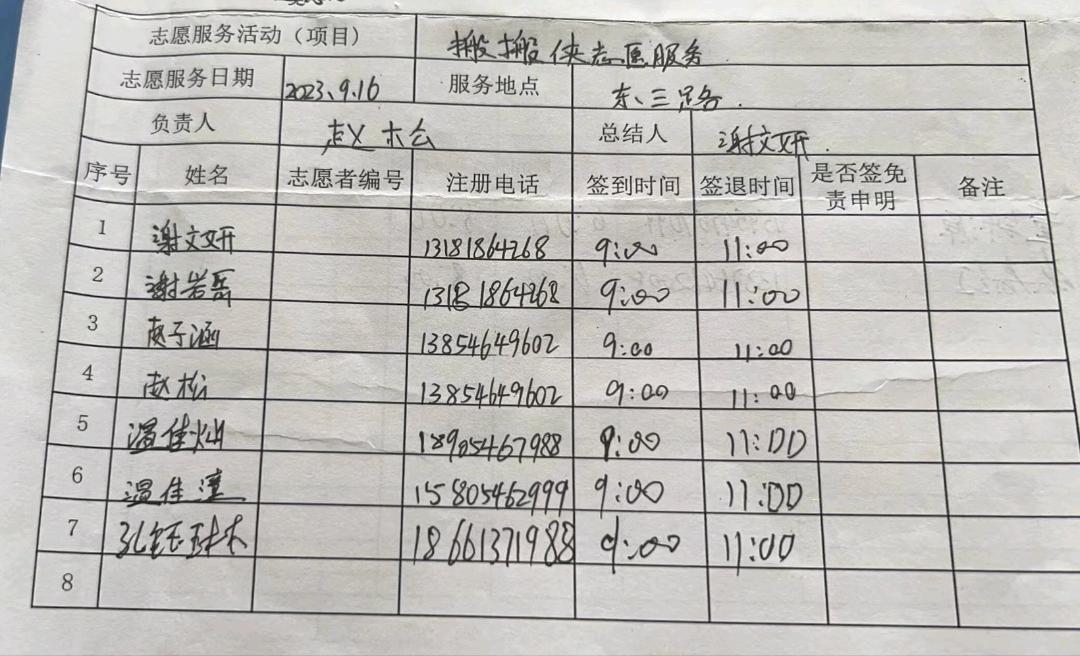 志愿服务活动（项目） 搬搬侠志愿服务
志愿服务日期 2023、9.16 服务地点 东三路.
负责人 赵 总结人 谢文妍.
序号 姓名 志愿者编号 注册电话 签到时间 签退时间 是否签免责申明 备注
1 谢文妍 13181864268 9:00 11:00
2 谢岩 13181864268 9:00 11:00
3 赵子涵 13854649602 9:00 11:00
4 赵松 13854649602 9:00 11:00
5 温佳灿 18905467988 9:00 11:00
6 温佳潼 15805462999 9:00 11:00
7 孔钰 18661371988 9:00 11:00
8